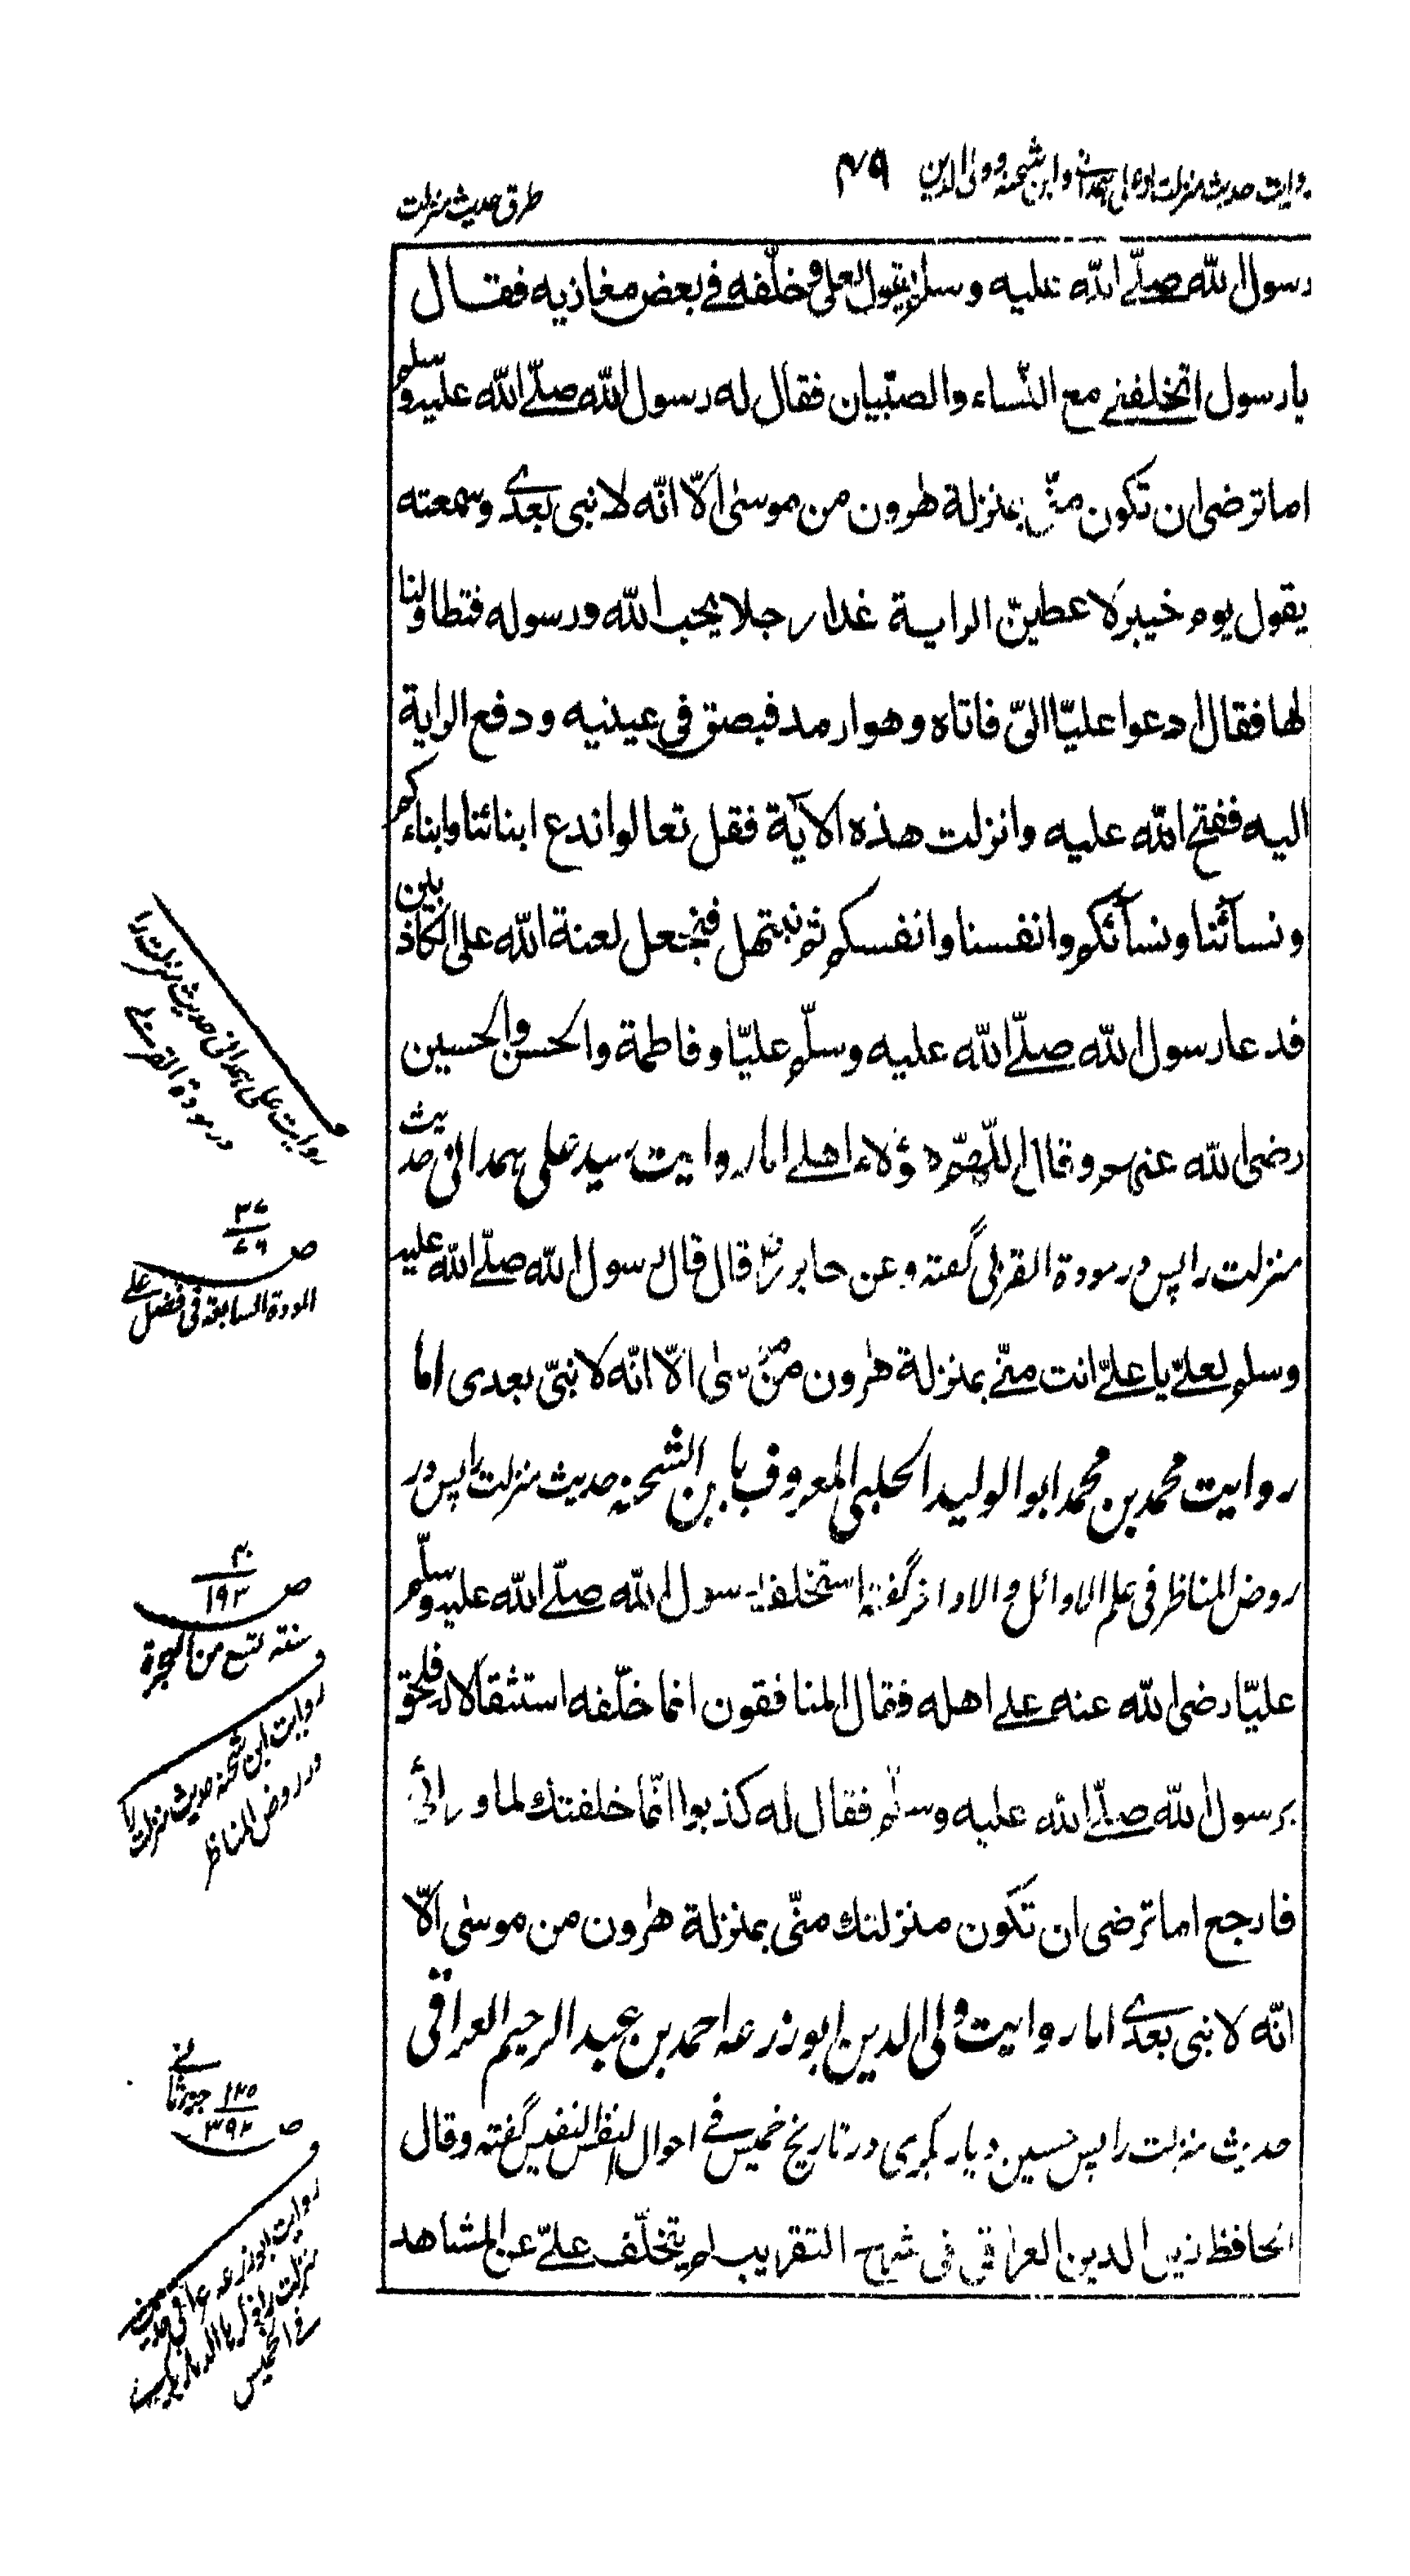 روایت حدیث منزلت از علی همدانی و ابن شحنه و ولی الدین
۴۹
طرق حدیث منزلت
رسول الله صلّے الله علیه وسلم یقول لعلی وخلّفه فے بعض مغازیه فقال
یا رسول اتخلفنے مع النّساء والصبّیان فقال له رسول الله صلّے الله علیه وسلم
اما ترضی ان تکون منّی بمنزلة هرون من موسیٰ الّا انّه لا نبی بعدے وسمعته
یقول یوم خیبر لاعطینّ الرایة غدا رجلا یحب الله ورسوله فتطاولنا
لها فقال ادعوا علیّا الیّ فاتاه وهو ارمد فبصق فی عینیه ودفع الرایة
الیه ففتح الله علیه وانزلت هذه الآیة فقل تعالوا ندع ابنائنا وابناءکم
ونسآئنا ونسآئکم وانفسنا وانفسکم ثم نبتهل فنجعل لعنة الله علی الکاذبین
فدعا رسول الله صلّے الله علیه وسلّم علیّا وفاطمة والحسن والحسین
رضی الله عنهم وقال اللّهمّ هؤلاء اهلے اما روایت سید علی همدانی حدیث
منزلت را پس در مودة القربی گفته وعن جابر رض قال قال رسول الله صلّے الله علیه
وسلم لعلیّ یا علیّ انت منّے بمنزلة هرون من موسیٰ الّا انّه لا نبیّ بعدی اما
روایت محمد بن محمد ابو الولید الحلبی المعروف بابن الشحنه حدیث منزلت را پس در
روض المناظر فی علم الاوائل والاواخر گفته استخلف رسول الله صلّے الله علیه وسلّم
علیّا رضی الله عنه علے اهله فقال المنافقون انما خلّفه استثقالا له فلحق
برسول الله صلّے الله علیه وسلّم فقال له کذبوا انّما خلفتك لما ورائی
فارجع اما ترضی ان تکون منزلتك منّی بمنزلة هٰرون من موسیٰ الّا
انّه لا نبی بعدے اما روایت ولی الدین ابو زرعه احمد بن عبد الرحیم العراقی
حدیث منزلت را پس حسین دیار بکری در تاریخ خمیس فے احوال النفس النفیس گفته وقال
الحافظ زین الدین العراقی فی شرح التقریب لم یتخلّف علیّ عن المشاهد
روایت علی همدانی حدیث منزلت را
در مودة القربے
ص ۳۷/۷۹
المودة السابعة فی فضل علے
ص ۳۰/۱۹۳
سنة تسع من الهجرة
روایت ابن شحنه حدیث منزلت را
در روض المناظر
ص ۱۲۵/۳۹۲ جزو ثانے
روایت ابو زرعه عراقی حدیث
فی الخمیس